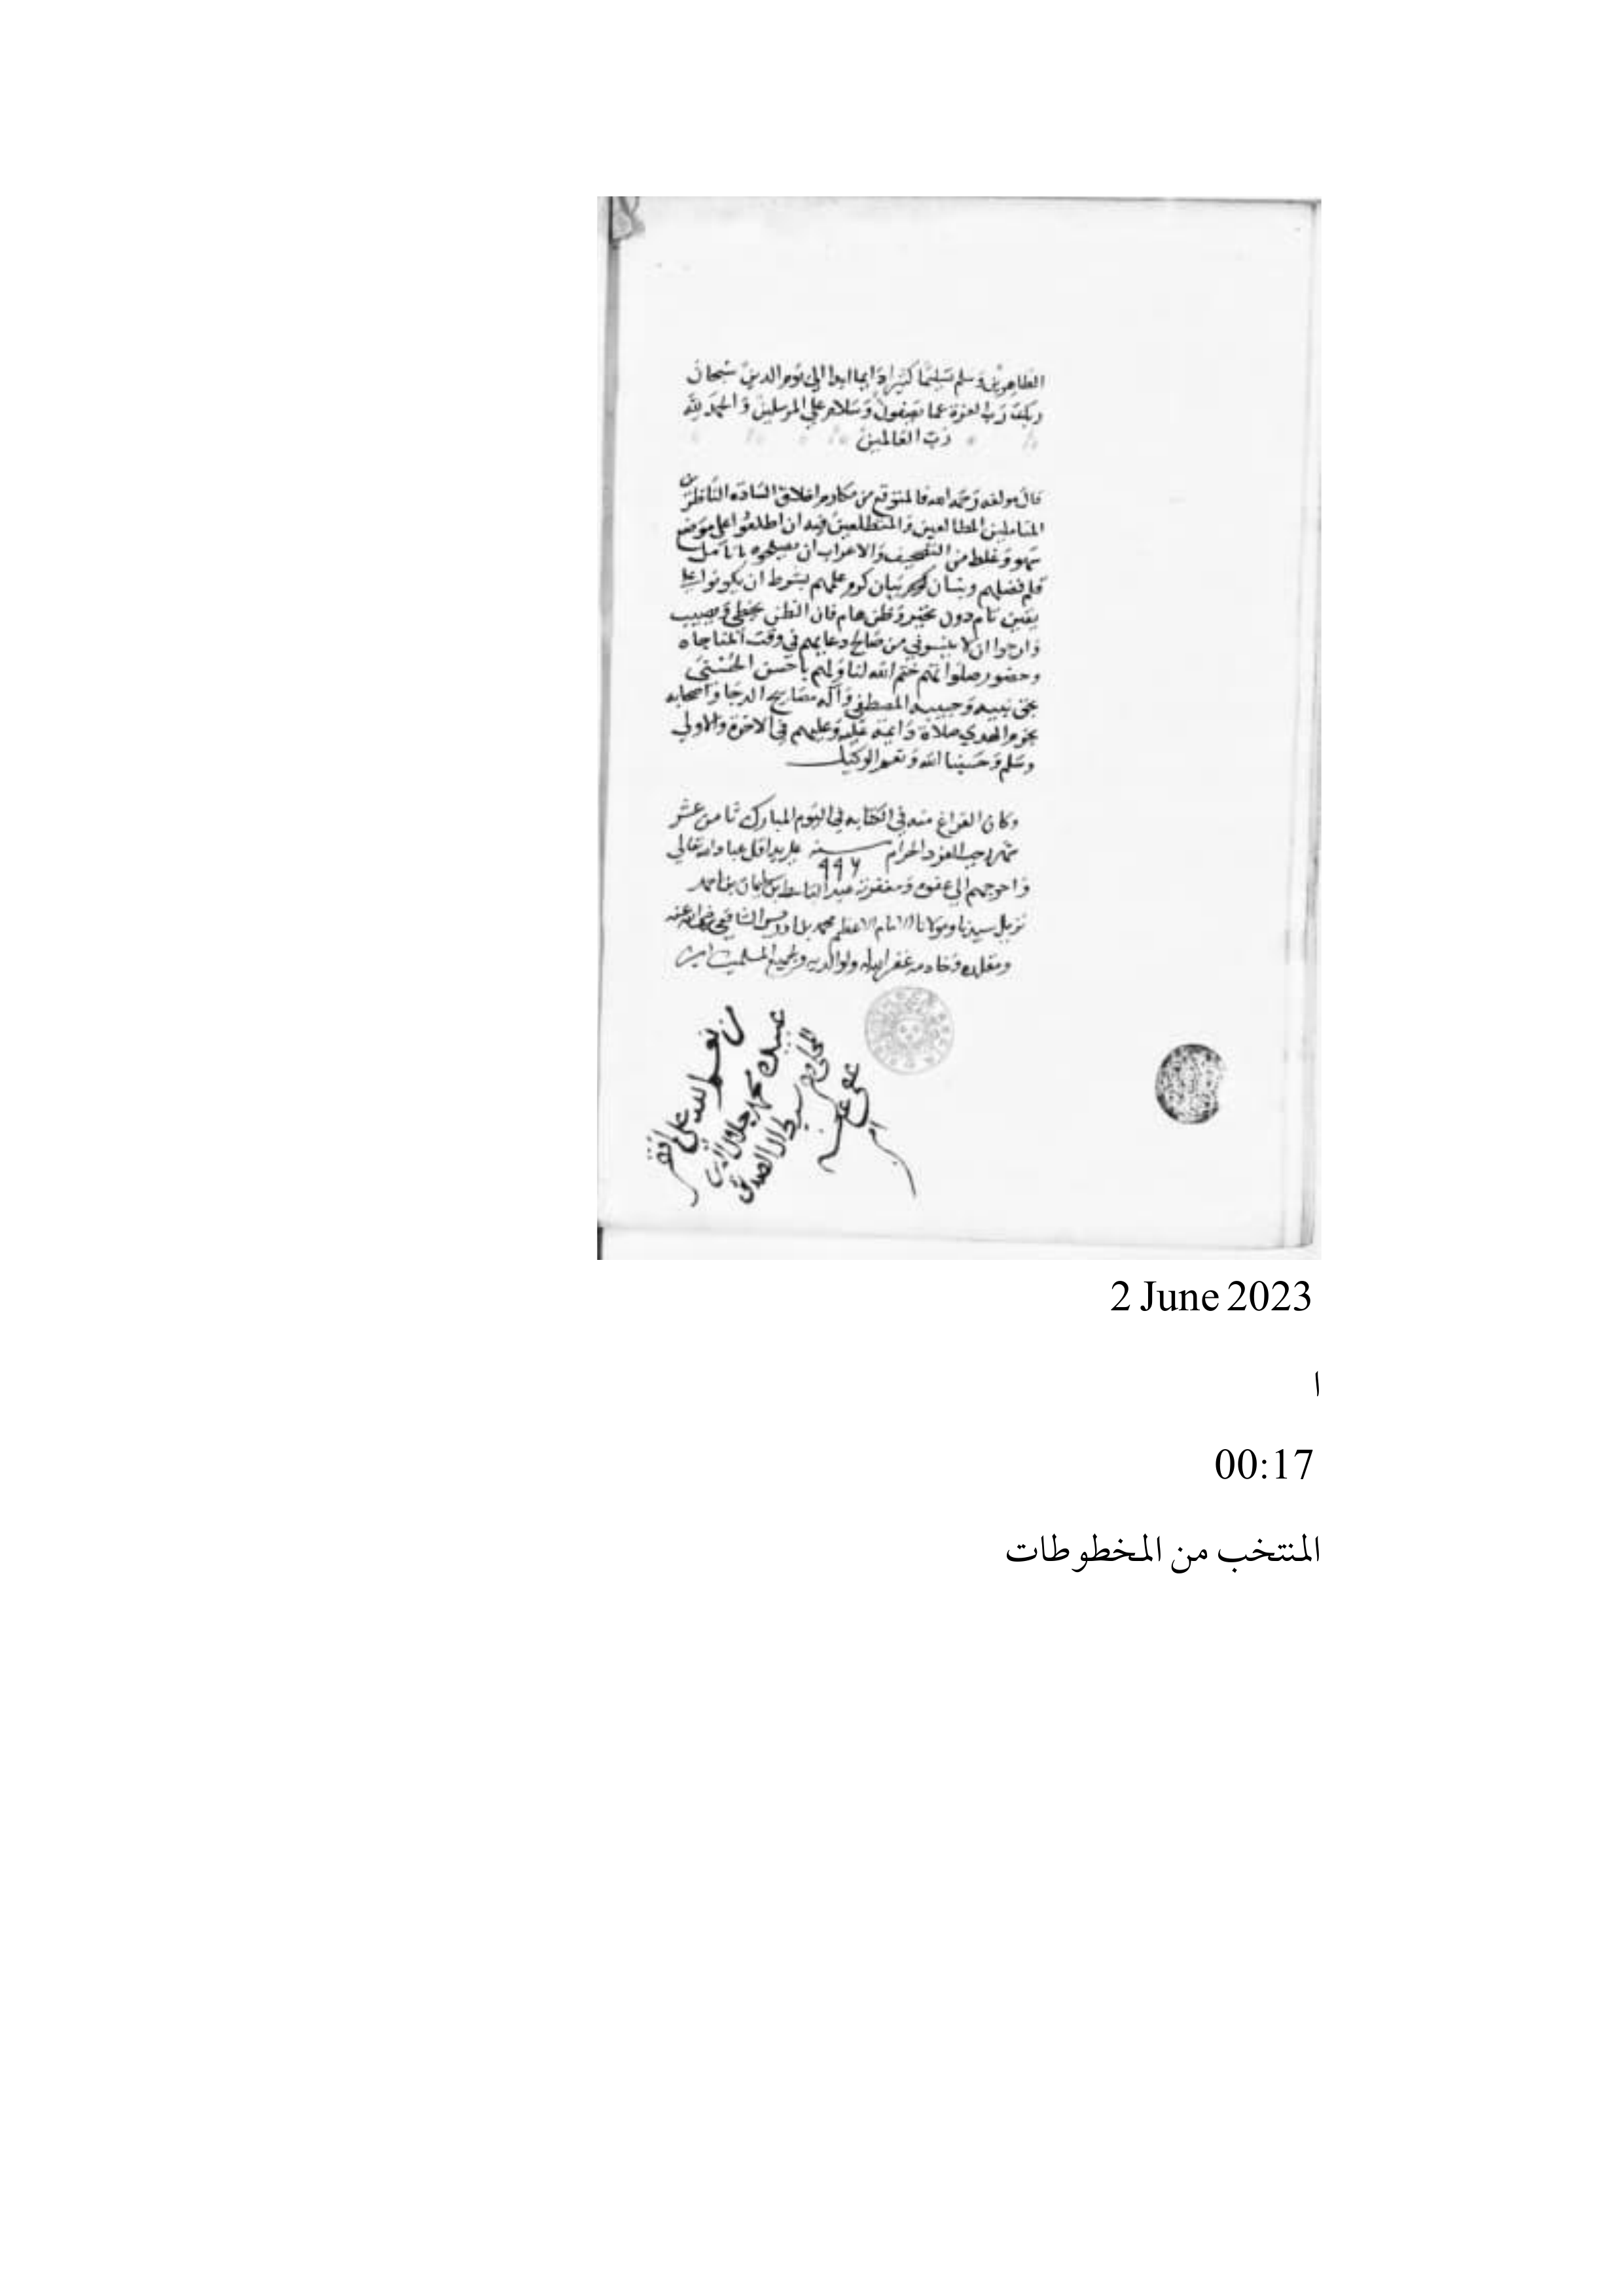 الطاهرين وسلم تسليما كثيرا دايما ابدا الي يوم الدين سبحان
ربك رب العزة عما يصفون وسلام علي المرسلين والحمد لله
رب العالمين
قال مولفه رحمه الله فالمتوقع من مكارم اخلاق السادة الناظرين
المتاملين المطالعين والمتطلعين فيه ان اطلعوا علي موضع
سهو وغلط من التصحيف والاعراب ان يصلحوه بانامل
قلم فضلهم وبنان بيان كرم علمهم بشرط ان يكونوا علي
يقين تام دون وظن هام فان الظن يخطي ويصيب
وارجوا ان لا ينسوني من صالح دعايهم في وقت المناجاه
وحضور صلواتهم ختم الله لنا ولهم باحسن الحسني
بحق نبيه وحبيبه المصطفي وآله مصابيح الدجا واصحابه
نجوم الهدي صلاة دايمة عليه وعليهم في الاخرة والاولي
وسلم وحسبنا الله ونعم الوكيل
وكان الفراغ منه في الكتابه في اليوم المبارك ثامن عشر
شهر رجب الفرد الحرام سنة ٩٩٦ علي يد اقل عباد الله تعالي
واحوجهم الي عفوه ومغفرته عبد الباسط بن سليمان بن احمد
نزيل سيدنا ومولانا الامام الاعظم محمد بن ادريس الشافعي رضي الله عنه
ومقلده وخادمه غفر الله له ولوالديه ولجميع المسلمين امين
من نعم الله علي افقر
عبيده محمد جلال الدين
سبط آل الصديق
عفي عنه
2 June 2023
ا
00:17
المنتخب من المخطوطات